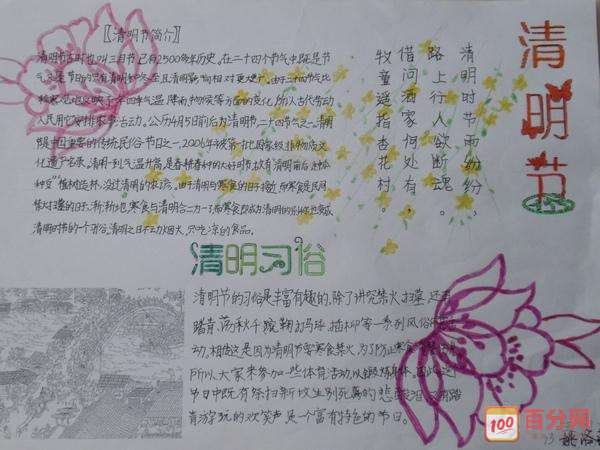 〖清明节简介〗
清明节古时也叫三月节,已有2500多年历史。在二十四个节气中,既是节
气又是节日的只有清明
气温、降雨、物候等方面的变化,所以古代劳动
人民用它安排农事活动。公历4月5日前后为清明节,二十四节气之一。清明
节是中国重要的传统民俗节日之一,2006年被
文
化遗产名录。清明一到,气温升高,是春耕春种的大好时节,故有"清明前后,
种豆""植树造林,没过清明的农谚。由于清明与寒食的日子接近,而寒食是民间
扫墓的日子,渐渐地,寒食与清明合二为一了,而寒食
清明时节的一个习俗,清明之日不动烟火,只吃凉的食品。
清明时节雨纷纷,
路上行人欲断魂。
借问酒家何处有,
牧童遥指杏花村。
清明节
清明习俗
清明节的习俗是丰富有趣的,除了讲究禁火、扫墓,还有
踏青、荡秋千、蹴鞠、打马球、插柳等一系列风俗
动。相传这是因为清明节要寒食禁火,为了防止寒食
所以大家来参加一些体育活动,以锻炼身体。因此,这个
节日中既有祭扫新坟生别死离的悲
青游玩的欢笑声,是一个富有特色的节日。
100
百分网